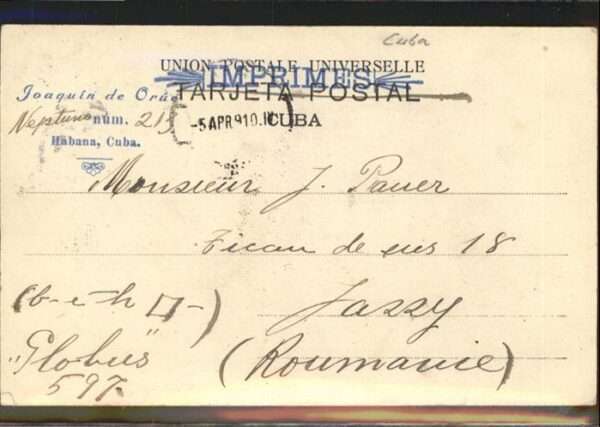 Cuba
UNION POSTALE UNIVERSELLE
IMPRIMES
TARJETA POSTAL
CUBA
Joaquín de Orúe
Neptuno núm. 215
Habana, Cuba.
-5APR910.
Monsieur J. Pauer
Ticau de sus 18
Jassy
(Roumanie)
(b-c-h
„Globus"
597.